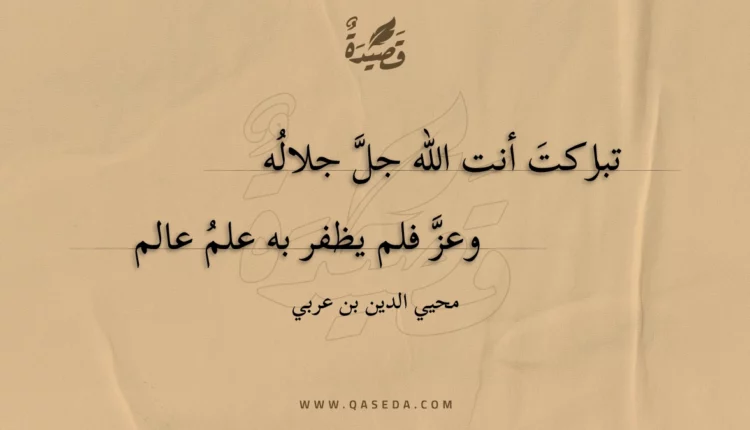 قَصِيْدَةٌ
تباركتَ أنت الله جلَّ جلالُه
وعزَّ فلم يظفر به علمُ عالم
محيي الدين بن عربي
WWW.QASEDA.COM